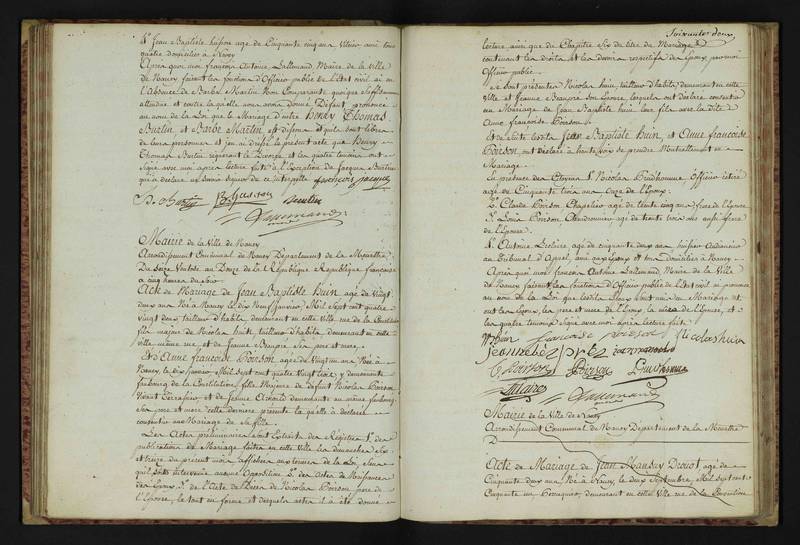 4° Jean Baptiste husson age de Cinquante cinq ans Vitrier ami tous
quatre domiciliés à Nancy
Après quoi moi françois Antoine Lallemand, Maire de la Ville
de Nancy faisant les fonctions d'Officier public de l'état civil ai en
l'Absence de Barbe Martin Non Comparante quoique
attendue et contre laquelle nous avons donné Défaut prononcé
au nom de la Loi que le Mariage d'entre Henry Thomas
Burtin et Barbe Martin est dissous et qu'ils sont libres
de leurs personnes et j'en ai dressé le présent acte que Henry
Thomas Burtin requérant le Divorce et les quatre témoins ont
signé avec moi après lecture faite à l'Exception de Jacques Burtin
qui a déclaré ne Savoir signer de ce interpellé françois jacques
husson
Lallemand
Mairie de la Ville de Nancy
Arrondissement Communal de Nancy Département de la Meurthe
Du Seize Ventose an Douze de la République française
à cinq heures du soir
Acte de Mariage de Jean Baptiste Huin âgé de Vingt
deux ans Né à Nancy le dix Neuf Janvier Mil Sept cent quatre
Vingt deux tailleur d'habits demeurant en cette Ville rue de la Constitution
fils majeur de Nicolas huin, tailleur d'habits demeurant en cette
Ville même rue et de Jeanne Beaupré Ses père et mere.
Et d'Anne françoise Poirson agée de Vingt un ans Née à
Nancy, le dix Janvier Mil Sept cent quatre Vingt trois y demeurante
faubourg de la Constitution, fille Majeure de Défunt Nicolas Poirson
Vivant Terrassier et de Jeanne demeurante au même faubourg
Ses père et mere cette dernière présente laquelle a déclaré
consentir au Mariage de Sa fille.
Les Actes préliminaires Sont Extraits des Registres 1° des
publications de Mariage faites en cette Ville les dimanches Six
et treize du présent mois, affichées aux termes de la Loi, Sans
qu'il Soit intervenu aucune Opposition 2° des actes de Naissances
des Epoux 3° de l'Acte de Décès de Nicolas Poirson pere de
l'Epouse, le tout en forme et desquels actes il a été donné
Soixante deux
lecture ainsi que du Chapitre Six du titre du Mariage
contenant les droits et les devoirs respectifs des Epoux par moi
Officier public.
Se sont présentés Nicolas huin, tailleur d'habits demeurant en cette
Ville et Jeanne Beaupré Son Epouse, lesquels ont déclaré consentir
au Mariage de Jean Baptiste huin leur fils avec la dite
Anne françoise Poirson.
Et de Suite lesdits Jean Baptiste Huin, et Anne françoise
Poirson ont déclaré à haute voix Se prendre Mutuellement en
Mariage
En présence des Citoyens 1° Nicolas Prudhomme, Officier retiré
agé de Cinquante trois ans Oncle de l'Epoux.
2° Claude Poirson Chapelier agé de trente cinq ans frere de l'Epouse
3° Louis Poirson, Chaudronnier agé de trente trois ans aussi frere
de l'Epouse.
4° Antoine Leclaire, agé de cinquante deux ans huissier Audiencier
au Tribunal d'Appel, ami aux Epoux et tous Domiciliés à Nancy
Après quoi moi françois Antoine Lallemand, Maire de la Ville
de Nancy faisant les fonctions d'Officier public de l'état civil ai prononcé
au nom de la Loi que lesdits Epoux Sont unis en Mariage et
ont les Epoux, les pere et mere de l'Epoux, la mere de l'Epouse, et
les quatre temoins Signé avec moi après lecture faite.
huin francoise poirson Nicolas huin
Jeanne
C Poirson Poirson Prudhomme
Lallemand
Mairie de la Ville de Nancy
Arrondissement Communal de Nancy Département de la Meurthe
D
Acte de Mariage de Jean Drouot agé de
Cinquante deux ans, Né à Nancy, le deux Septembre, Mil Sept cent
Cinquante un, Perruquier, demeurant en cette Ville rue de la